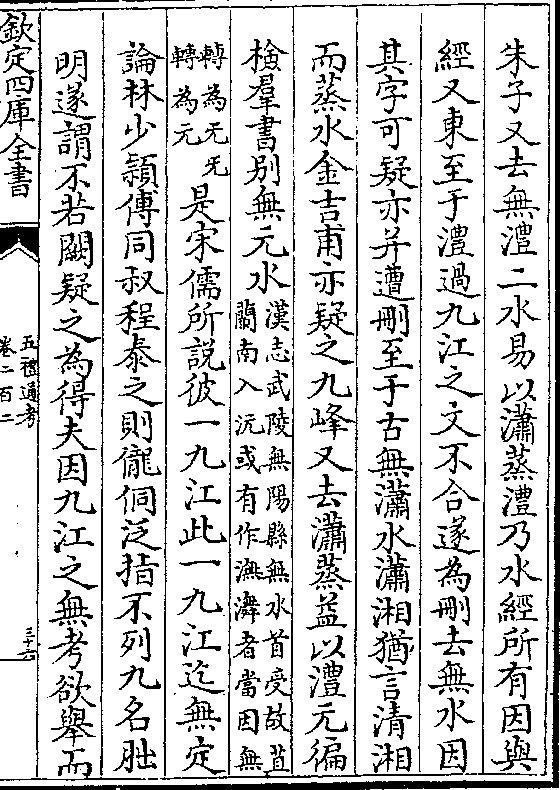 朱子又去無澧二水易以瀟蒸澧乃水經所有因與
經又東至于澧過九江之文不合遂為刪去無水因
其字可疑亦并遭刪至于古無瀟水瀟湘猶言清湘
而蒸水金吉甫亦疑之九峰又去瀟蒸益以澧元徧
檢羣書别無元水
漢志武陵無陽縣無水首受故苴
蘭南入沅或有作潕㵲者當因無
轉為无旡
轉為元
是宋儒所説彼一九江此一九江迄無定
論林少頴傅同叔程泰之則儱侗泛指不列九名胐
明遂謂不若闕疑之為得夫因九江之無考欲舉而
欽定四庫全書
五禮通考
卷二百二
三六